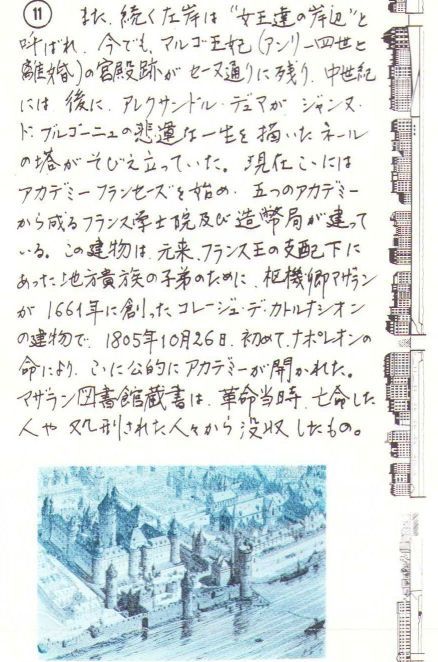 11 また、続く左岸は"女王達の岸辺"と
呼ばれ、今でも、マルゴ王妃(アンリー四世と
離婚)の宮殿跡がセーヌ通りに残り、中世紀
には後に、アレクサンドル・デュマが ジャンヌ・
ド・ブルゴーニュの悲運な一生を描いたネール
の塔がそびえ立っていた。現在ここには
アカデミーフランセーズを始め、五つのアカデミー
から成るフランス学士院及び造幣局が建って
いる。この建物は、元来、フランス王の支配下に
あった地方貴族の子弟のために、枢機卿マザラン
が1661年に創ったコレージュ・デ・カトルナシオン
の建物で、1805年10月26日、初めて、ナポレオンの
命により、ここに公的にアカデミーが開かれた。
マザラン図書館蔵書は、革命当時、亡命した
人や処刑された人々から没収したもの。